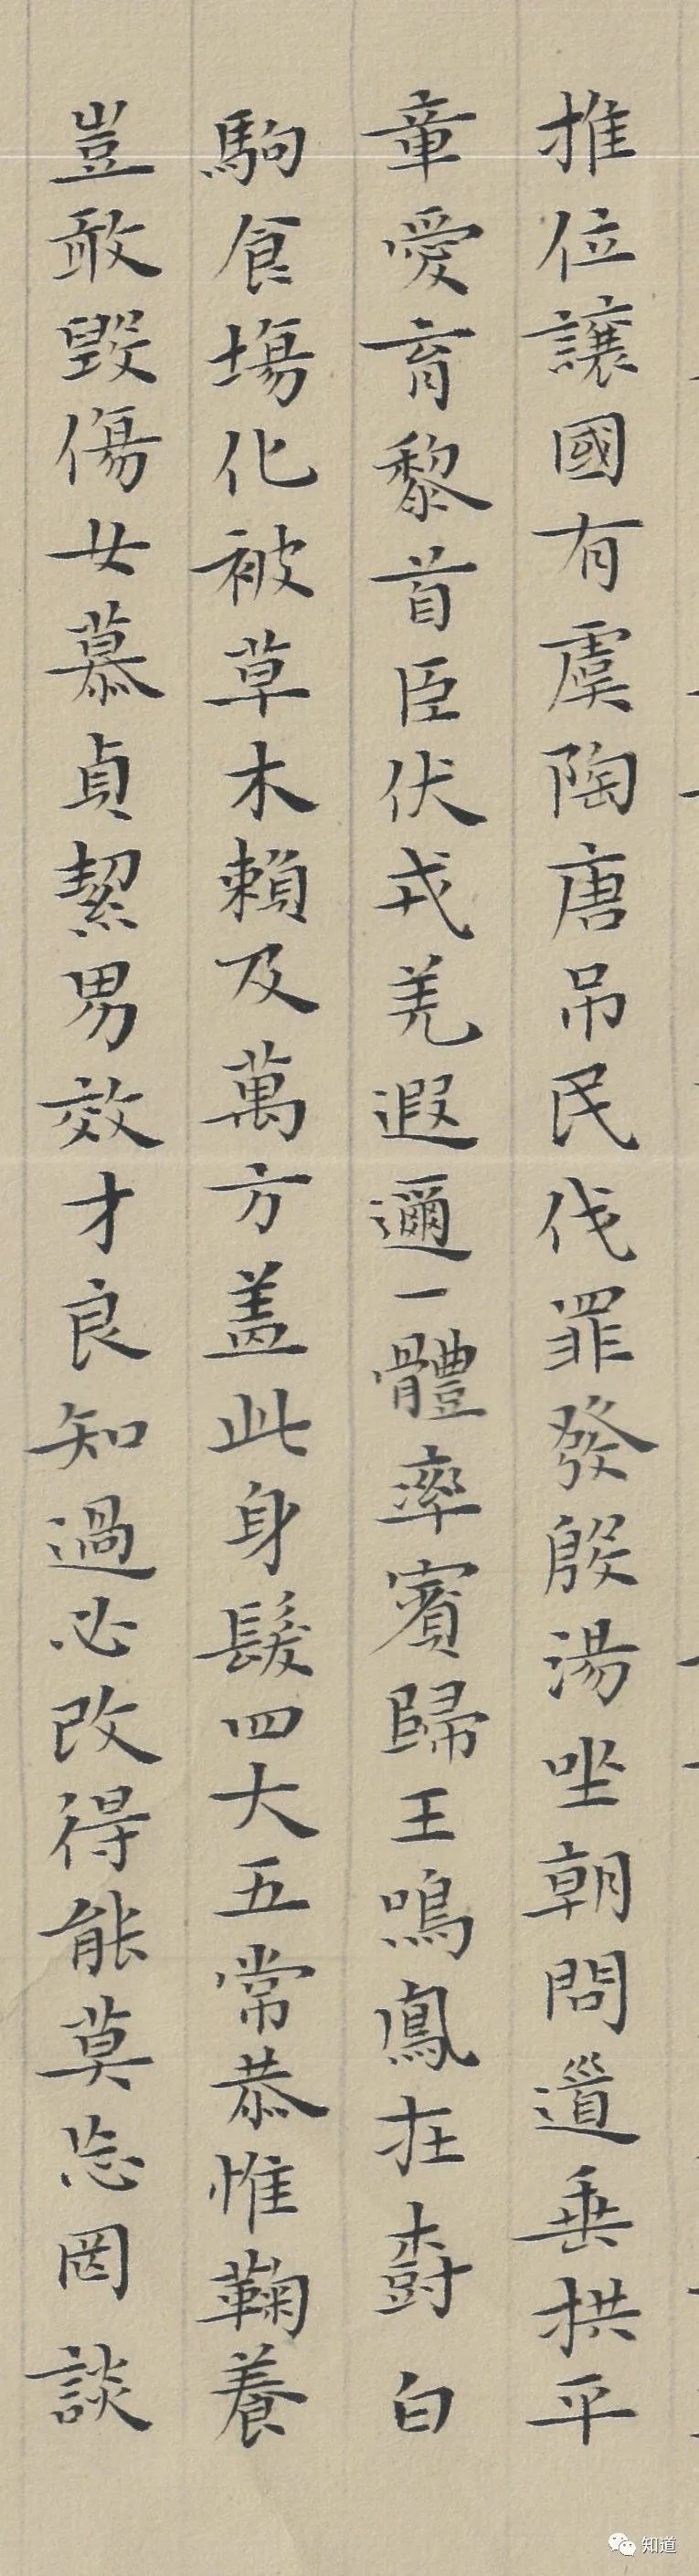 推位讓國有虞陶唐吊民伐罪發殷湯坐朝問道垂拱平
章愛育黎首臣伏戎羌遐邇一體率賓歸王鳴鳳在樹白
駒食場化被草木賴及萬方蓋此身髮四大五常恭惟鞠養
豈敢毀傷女慕貞絜男效才良知過必改得能莫忘罔談
知道